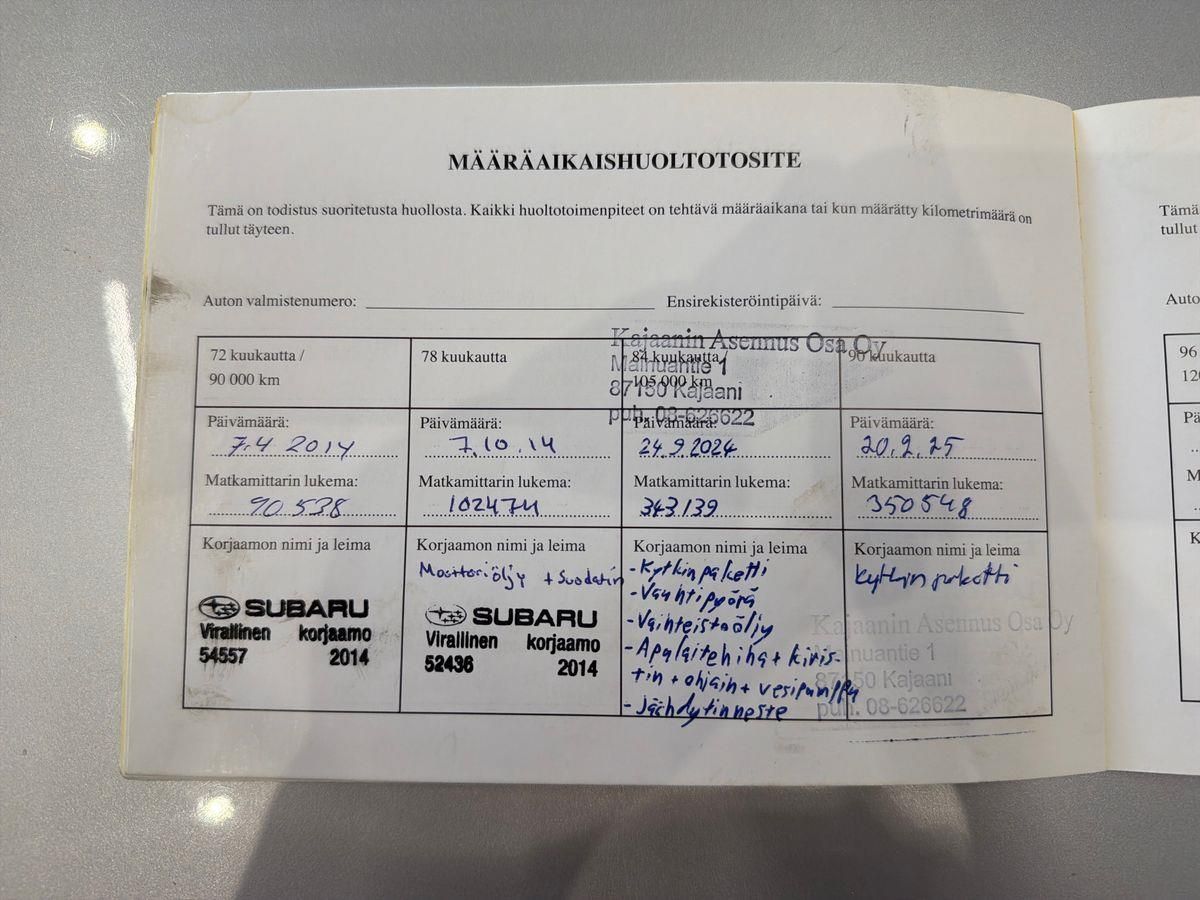 MÄÄRÄAIKAISHUOLTOTOSITE
Tämä on todistus suoritetusta huollosta. Kaikki huoltotoimenpiteet on tehtävä määräaikana tai kun määrätty kilometrimäärä on
tullut täyteen.
Auton valmistenumero:
Ensirekisteröintipäivä:
72 kuukautta /
90 000 km
Päivämäärä:
7.4 2014
Matkamittarin lukema:
90 538
Korjaamon nimi ja leima
SUBARU
Virallinen korjaamo
54557 2014
78 kuukautta
Päivämäärä:
7.10.14
Matkamittarin lukema:
102474
Korjaamon nimi ja leima
Moottoriöljy + suodatin
SUBARU
Virallinen korjaamo
52436 2014
Kajaanin Asennus Osa Oy
Mainuantie 1
87150 Kajaani
puh. 08-626622
84 kuukautta /
105 000 km
Päivämäärä:
24.9.2024
Matkamittarin lukema:
343139
Korjaamon nimi ja leima
- Kytkinpaketti
- Vauhtipyörä
- Vaihteistoöljy
- Apulaitehihna + kiris-
tin + ohjain + vesipumppu
- Jäähdytinneste
90 kuukautta
Päivämäärä:
20.2.25
Matkamittarin lukema:
350548
Korjaamon nimi ja leima
Kytkin paketti
Kajaanin Asennus Osa Oy
Mainuantie 1
87150 Kajaani
puh. 08-626622
Tämä
tullut
Auto
96
120
Pä
M
K